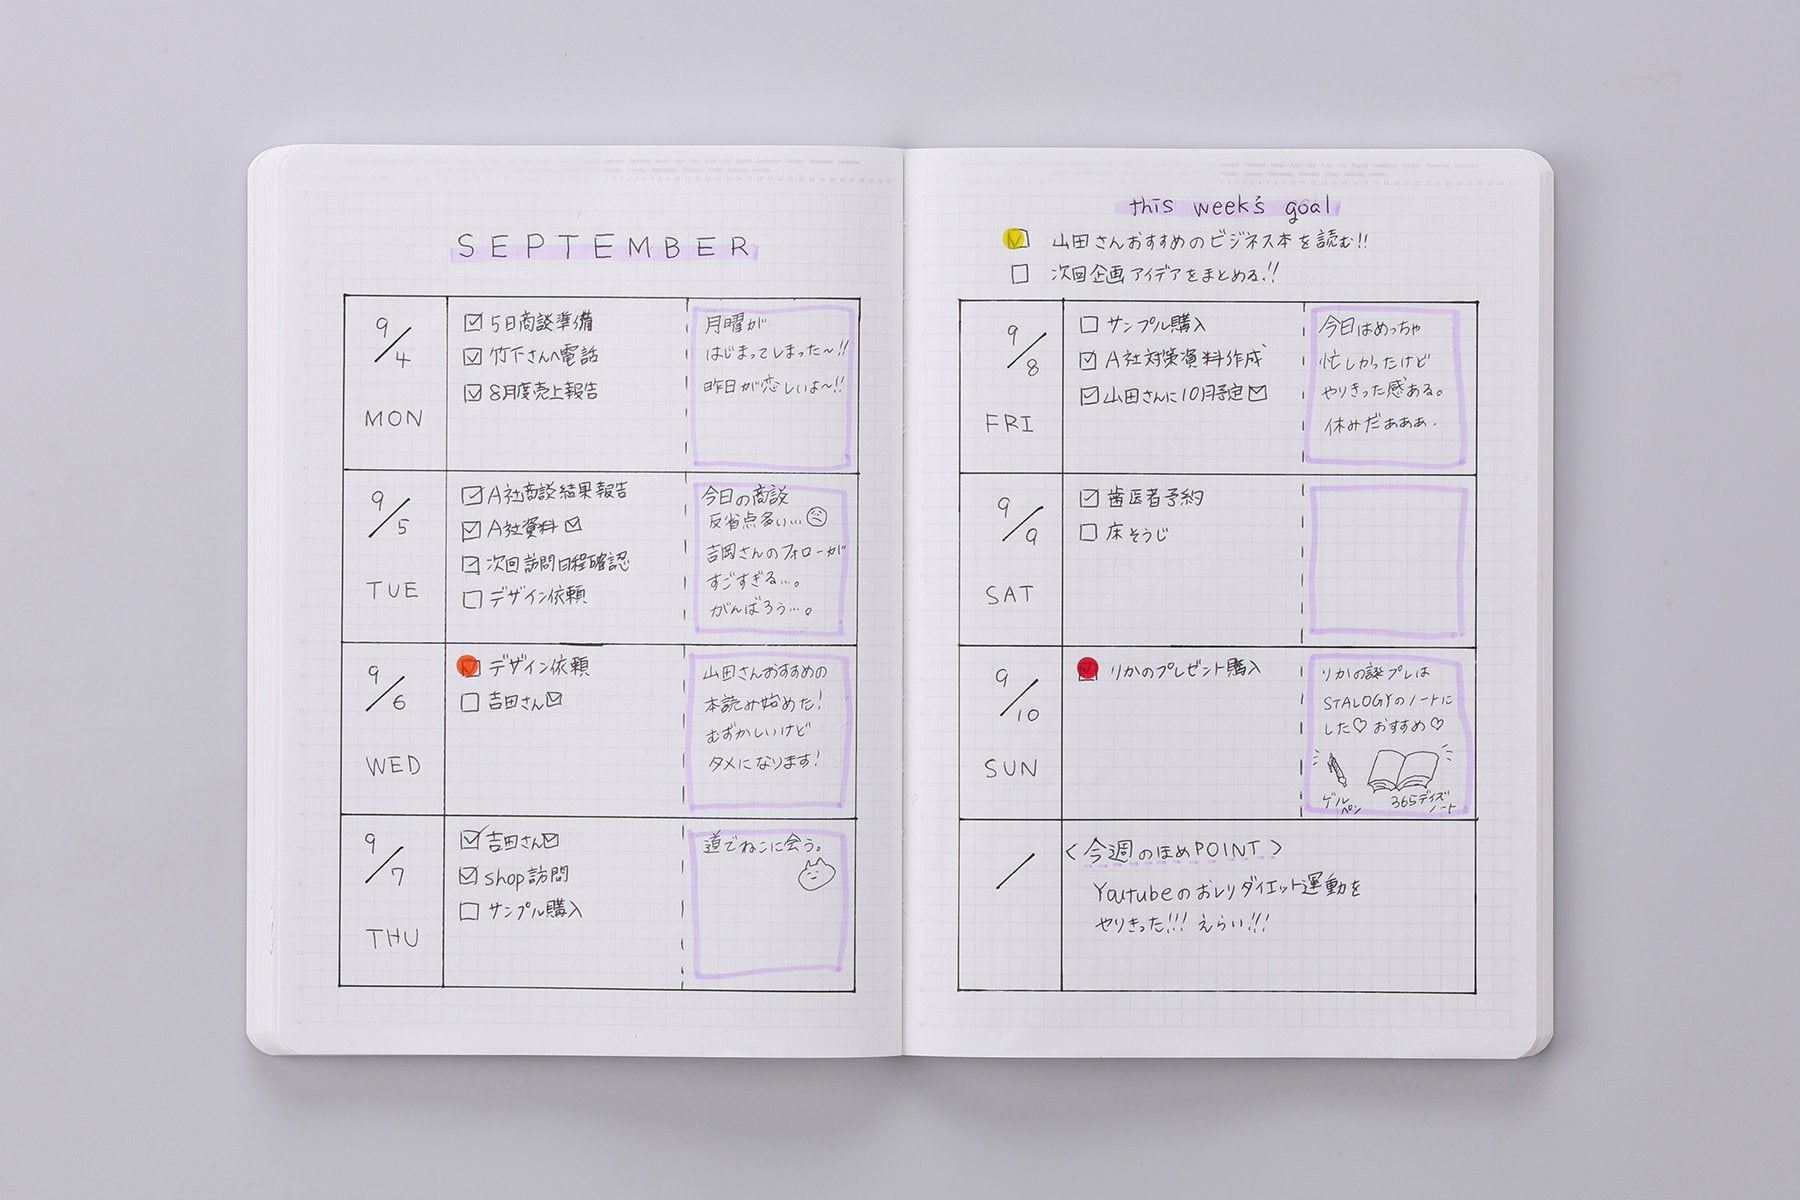 January February March April May June July August September October November December
Monday Tuesday Wednesday Thursday Friday Saturday Sunday
SEPTEMBER
9/4
MON
☑ 5日商談準備
☑ 竹下さんへ電話
☑ 8月度売上報告
月曜が
はじまってしまった〜!!
昨日が恋しいよ〜!!
9/5
TUE
☑ A社商談結果報告
☑ A社資料✉
☑ 次回訪問日程確認
☐ デザイン依頼
今日の商談
反省点多い…☹
吉岡さんのフォローが
すごすぎる…。
がんばろう…。
9/6
WED
☑ デザイン依頼
☐ 吉田さん✉
山田さんおすすめの
本読み始めた!
むずかしいけど
タメになります!
9/7
THU
☑ 吉田さん✉
☑ shop訪問
☐ サンプル購入
道でねこに会う。
January February March April May June July August September October November December
Monday Tuesday Wednesday Thursday Friday Saturday Sunday
this week's goal
☑ 山田さんおすすめのビジネス本を読む!!
☐ 次回企画アイデアをまとめる!!
9/8
FRI
☐ サンプル購入
☑ A社対策資料作成
☑ 山田さんに10月予定✉
今日はめっちゃ
忙しかったけど
やりきった感ある。
休みだぁぁぁ.
9/9
SAT
☑ 歯医者予約
☐ 床そうじ
9/10
SUN
☑ りかのプレゼント購入
りかの誕プレは
STALOGYのノートに
した♡おすすめ♡
ゲルペン
365デイズノート
/
<今週のほめPOINT>
Youtubeのおしりダイエット運動を
やりきった!!! えらい!!!